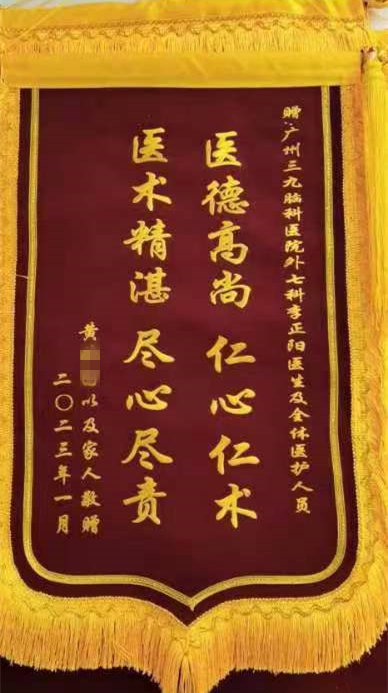 赠:广州三九脑科医院外七科李正阳医生及全体医护人员
医德高尚 仁心仁术
医术精湛 尽心尽责
黄以及家人敬赠
二〇二三年一月